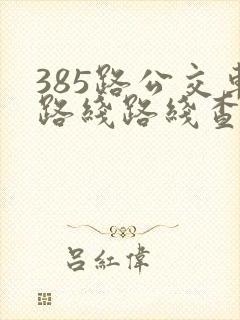 385路公交车
路线路线查
吕紅偉